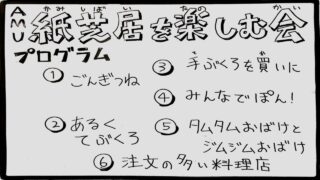 AMU 紙芝居を楽しむ会
かみしばい たの かい
プログラム
① ごんぎつね
② あるく
てぶくろ
③ 手ぶくろを買いに
④ みんなでぽん!
⑤ タムタムおばけと
ジムジムおばけ
⑥ 注文の多い料理店